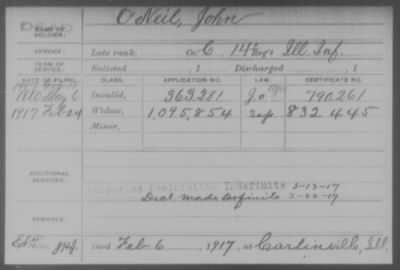 O'Neil, John
NAME OF SOLDIER:
SERVICE: Late rank, Co. C, 14 Reg't Ill. Inf.
TERM OF SERVICE: Enlisted , 1 Discharged , 1
DATE OF FILING. CLASS. APPLICATION NO. LAW. CERTIFICATE NO.
1880 May 6 Invalid, 363,281 790,261
1917 Feb 24 Widow, 1,095,854 832 445
Minor,
ADDITIONAL SERVICES:
Indefinite 3-13-17
Decl. Made Definite 3-22-17
REMARKS:
Died Feb 6, 1917, at Carlinville, Ill.